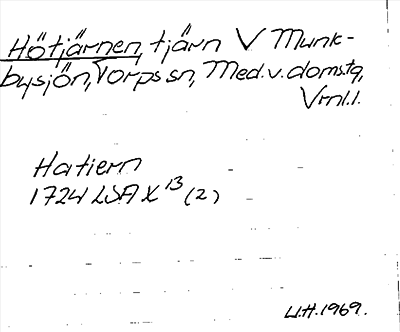 Hötjärnen, tjärn V Munk-
bysjön, Torps sn, Med.v. domstg,
Vrnl.l.
Hatiern
1724 LSA X 13 (2)
U.H. 1969.